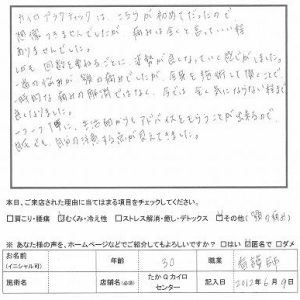 カイロプラクティックは、こちらが初めてだったので
想像つきませんでしたが 痛みは全くと言っていい程
ありませんでした。
しかも回数を重ねるごとに 姿勢が良くなっていく感じがしました。
一番の悩みが 頭の痛みでしたが、全身を施術して頂くことで
一時的な痛みの解消ではなく、今では 全く気にならない程まで
良くなりました。
生活面からもアドバイスをもらうことが出来るので
自分の注意する点が見えてきました。
本日、ご来店された理由に当てはまる項目をチェックしてください。
□肩こり・腰痛 ☑むくみ・冷え性 □ストレス解消・癒し・デトックス ☑その他(頭の痛み)
※ あなた様の声を、ホームページなどでご紹介してもよろしいですか? □はい ☑匿名で □ダメ
お名前 (イニシャル可) 年齢 30 職業 看護師
施術名 店舗名(必須) たかQカイロセンター 記入日 2012年6月9日